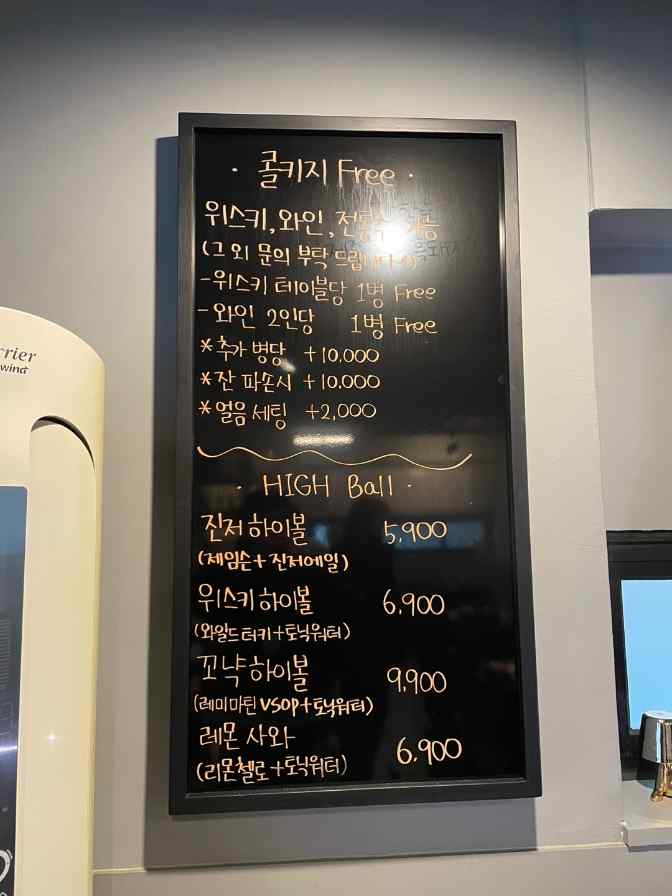 · 콜키지 Free ·
위스키, 와인, 전통주 가능
(그 외 문의 부탁 드립니다^^)
-위스키 테이블당 1병 Free
- 와인 2인당 1병 Free
*추가 병당 +10,000
*잔 파손시 +10,000
*얼음 세팅 +2,000
· HIGH Ball ·
진저 하이볼 5,900
(제임슨+진저에일)
위스키 하이볼 6,900
(와일드터키+토닉워터)
꼬냑 하이볼 9,900
(레미마틴 VSOP+토닉워터)
레몬 사와 6,900
(리몬첼로+토닉워터)
rrier
wind